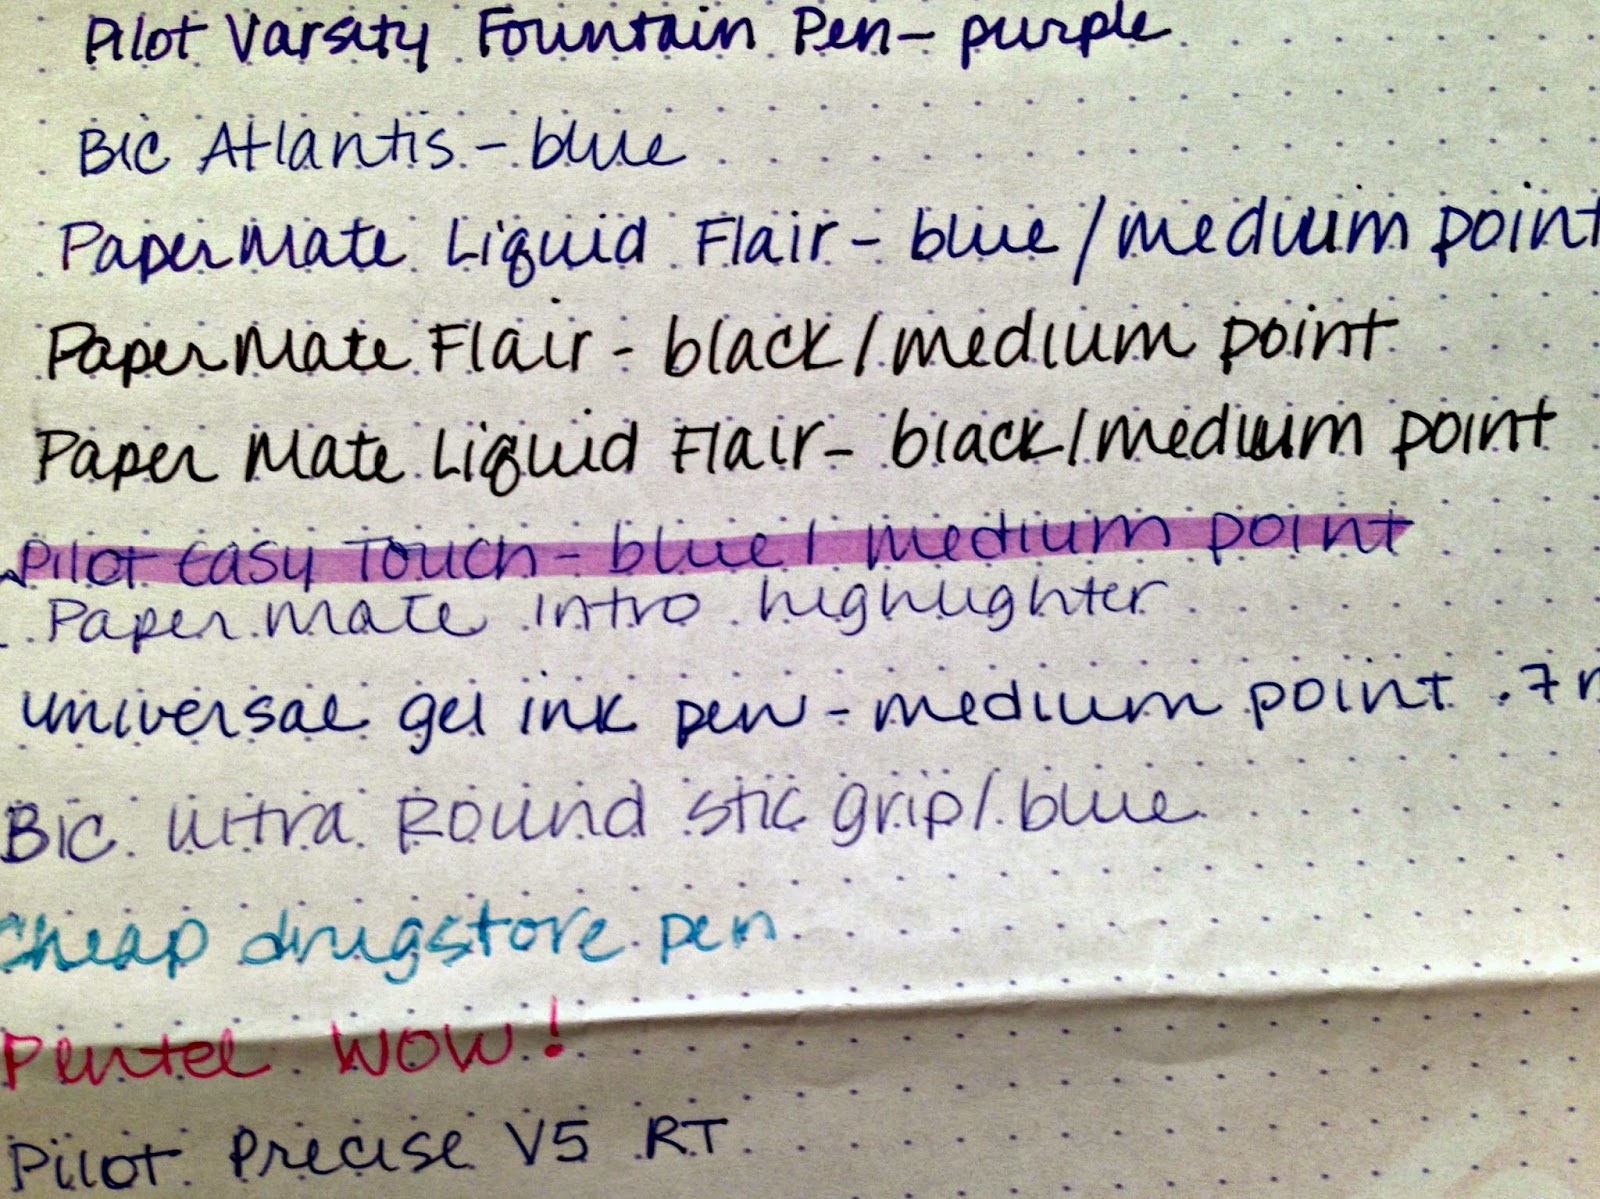 Pilot Varsity Fountain Pen - purple
Bic Atlantis - blue
PaperMate Liquid Flair - blue / medium point
PaperMate Flair - black / medium point
Paper Mate Liquid Flair - black / medium point
Pilot Easy Touch - blue / medium point
Paper Mate intro highlighter
universal gel ink pen - medium point .7m
Bic Ultra Round stic grip / blue
Cheap drugstore pen
Pentel WOW!
Pilot Precise V5 RT